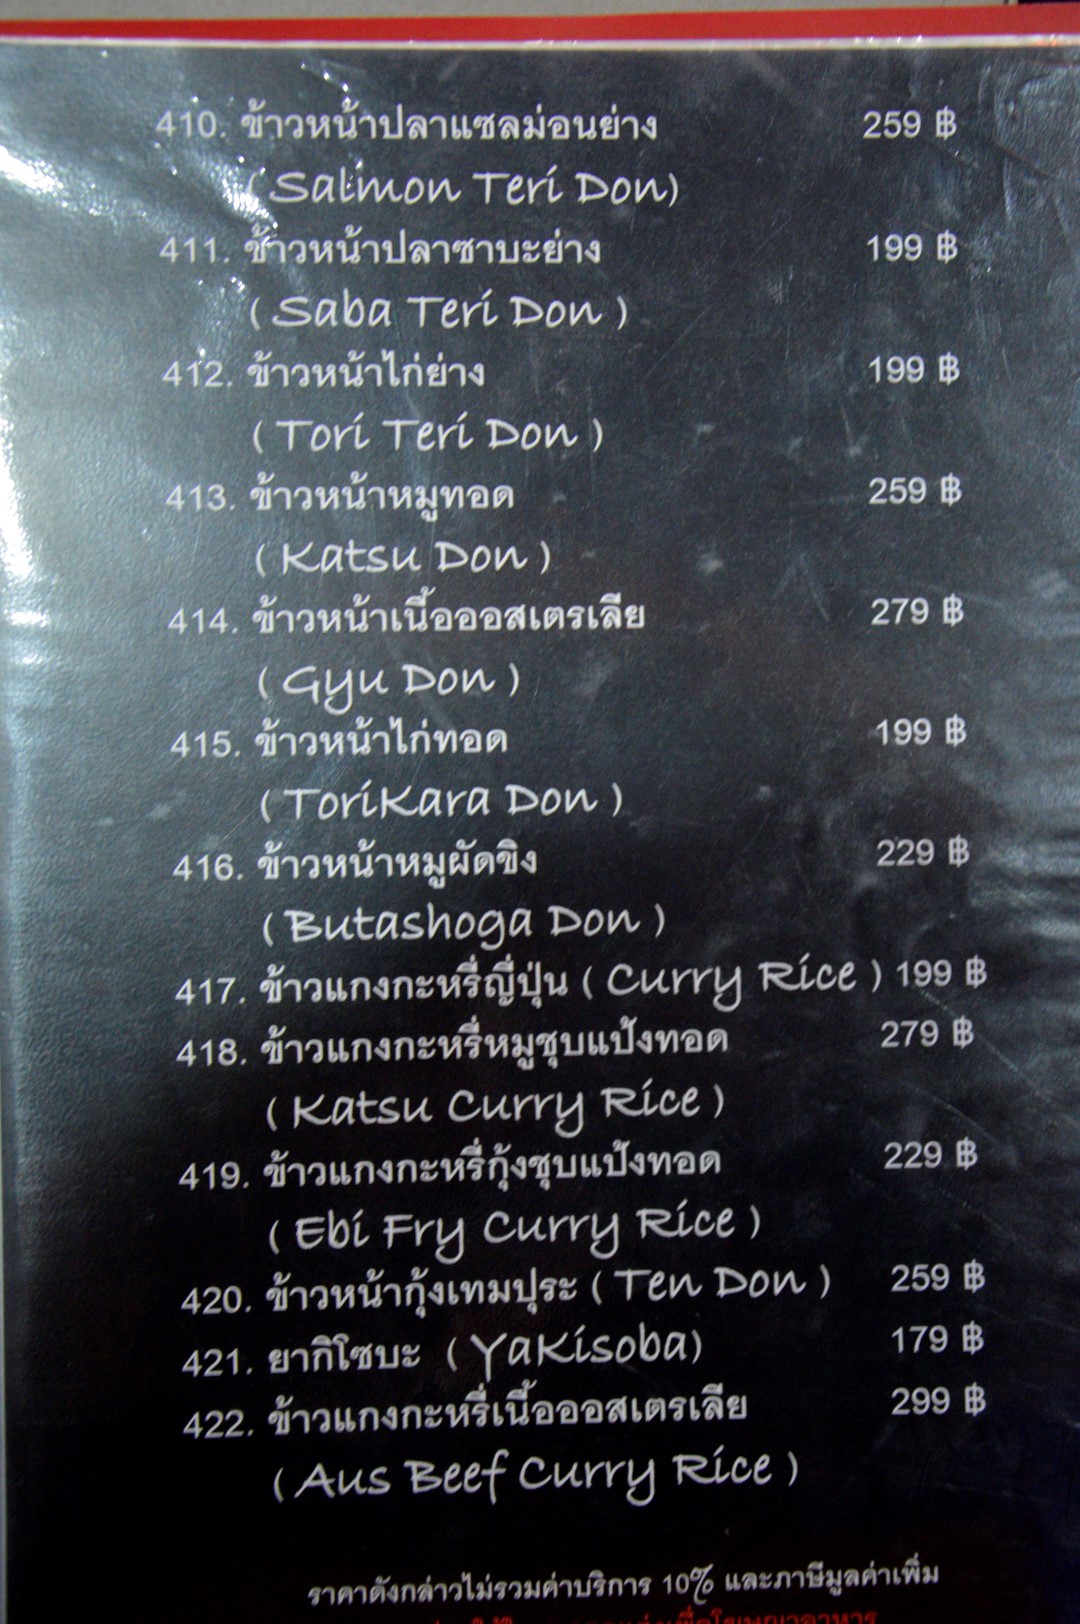 410. ข้าวหน้าปลาแซลม่อนย่าง 259 ฿
( Salmon Teri Don)
411. ข้าวหน้าปลาซาบะย่าง 199 ฿
( Saba Teri Don )
412. ข้าวหน้าไก่ย่าง 199 ฿
( Tori Teri Don )
413. ข้าวหน้าหมูทอด 259 ฿
( Katsu Don )
414. ข้าวหน้าเนื้อออสเตรเลีย 279 ฿
( Gyu Don )
415. ข้าวหน้าไก่ทอด 199 ฿
( ToriKara Don )
416. ข้าวหน้าหมูผัดขิง 229 ฿
( Butashoga Don )
417. ข้าวแกงกะหรี่ญี่ปุ่น ( Curry Rice ) 199 ฿
418. ข้าวแกงกะหรี่หมูชุบแป้งทอด 279 ฿
( Katsu Curry Rice )
419. ข้าวแกงกะหรี่กุ้งชุบแป้งทอด 229 ฿
( Ebi Fry Curry Rice )
420. ข้าวหน้ากุ้งเทมปุระ ( Ten Don ) 259 ฿
421. ยากิโซบะ ( Yakisoba) 179 ฿
422. ข้าวแกงกะหรี่เนื้อออสเตรเลีย 299 ฿
( Aus Beef Curry Rice )
ราคาดังกล่าวไม่รวมค่าบริการ 10% และภาษีมูลค่าเพิ่ม